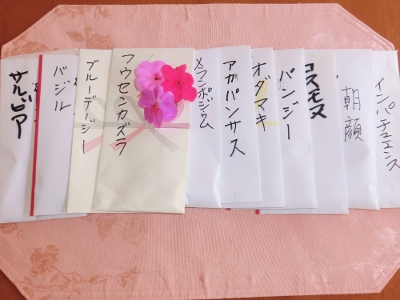 サルビア
バジル
ブルーデージー
フウセンカズラ
メランポジウム
アガパンサス
オダマキ
パンジー
コスモス
朝顔
インパチェンス